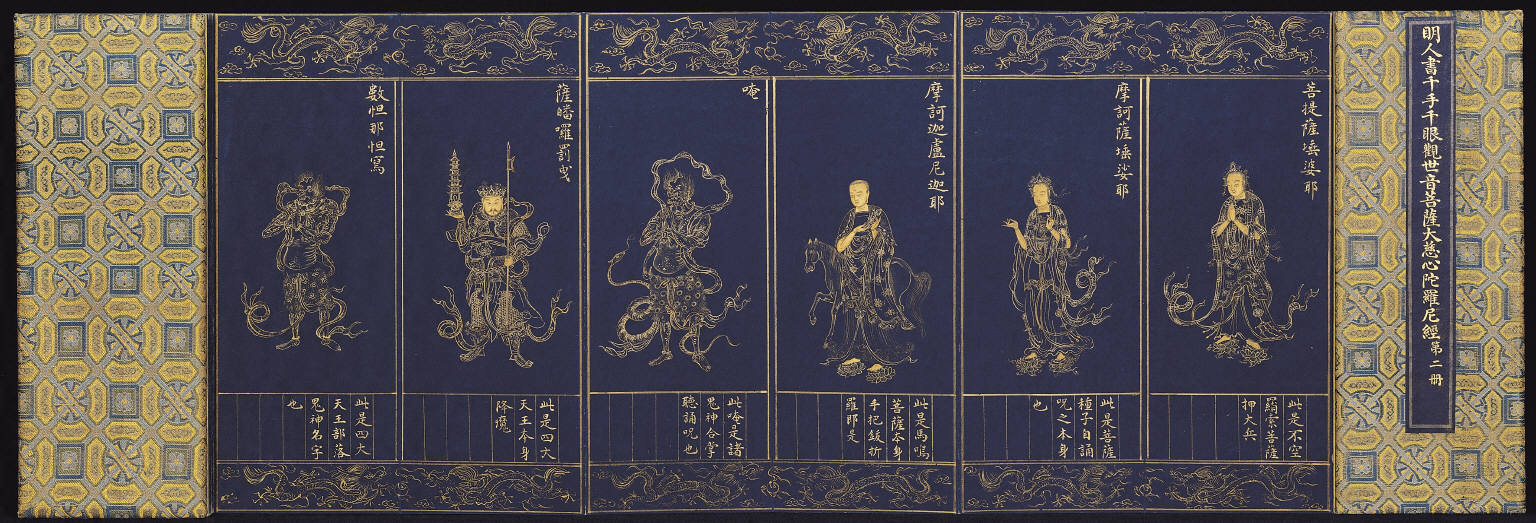 明人書千手千眼觀世音菩薩大慈心陀羅尼經 第二冊
菩提薩埵婆耶
此是不空
羂索菩薩
押大兵
摩訶薩埵娑耶
此是菩薩
種子自誦
呪之本身
也
摩訶迦盧尼迦耶
此是馬鳴
菩薩本身
手把鈸折
羅即是
唵
此唵是諸
鬼神合掌
聽誦呪也
薩皤囉罰曳
此是四大
天王本身
降魔
數怛那怛寫
此是四大
天王部落
鬼神名字
也